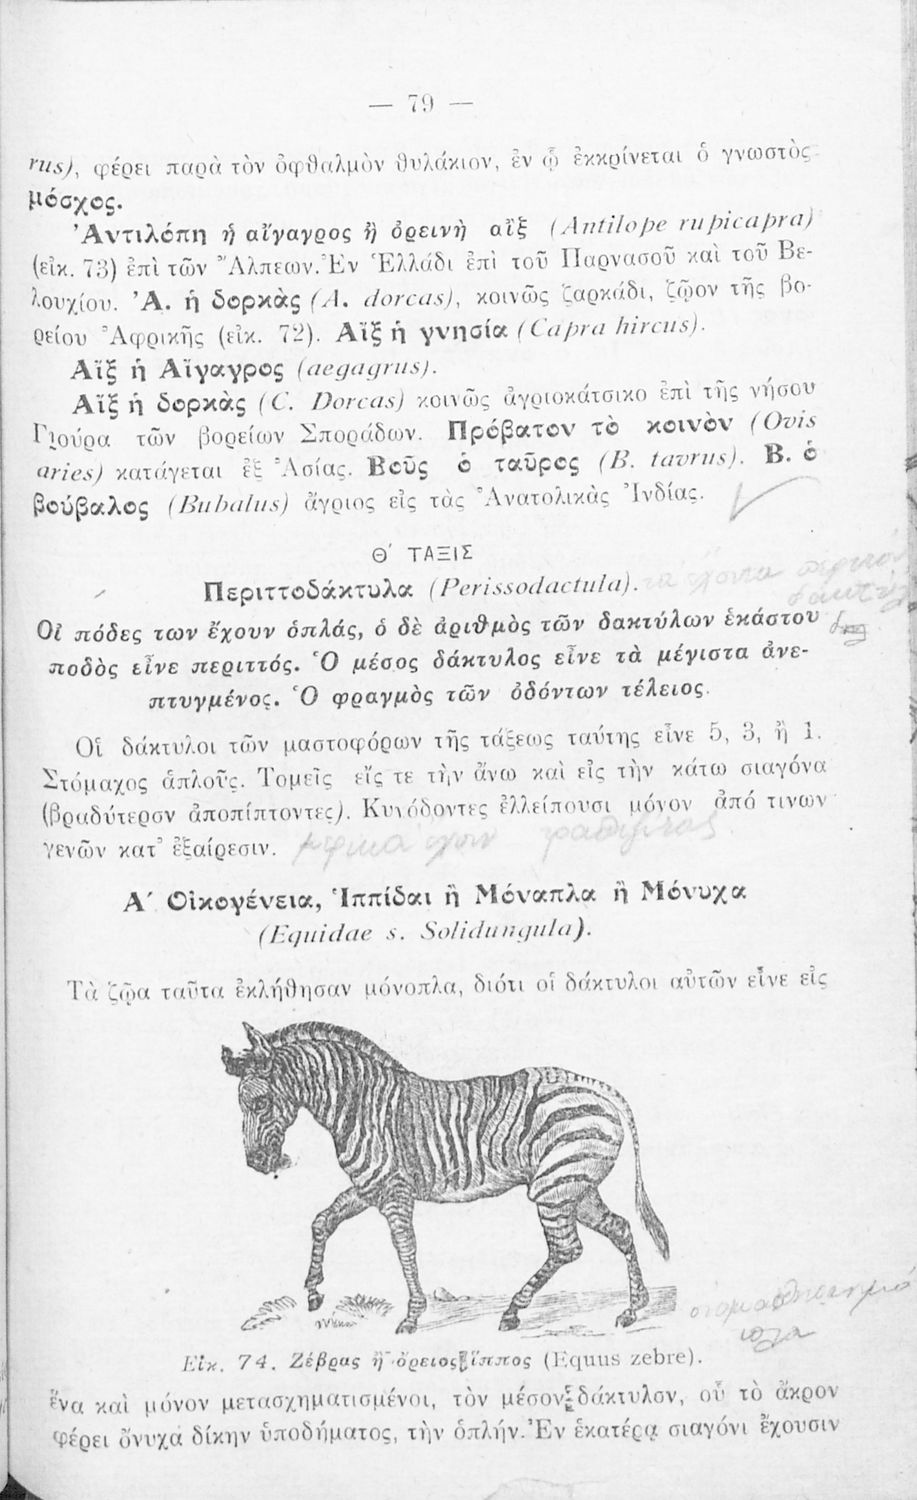 — 79 —
rus), φέρει παρὰ τὸν ὀφθαλμὸν θυλάκιον, ἐν ᾧ ἐκκρίνεται ὁ γνωστὸς
μόσχος.
Ἀντιλόπη ἡ αἴγαγρος ἢ ὀρεινὴ αἴξ (Antilope rupicapra)
(εἰκ. 73) ἐπὶ τῶν Ἄλπεων. Ἐν Ἑλλάδι ἐπὶ τοῦ Παρνασοῦ καὶ τοῦ Βε-
λουχίου. Ἀ. ἡ δορκὰς (A. dorcas), κοινῶς ζαρκάδι, ζῷον τῆς βο-
ρείου Ἀφρικῆς (εἰκ. 72). Αἴξ ἡ γνησία (Capra hircus).
Αἴξ ἡ Αἴγαγρος (aegagrus).
Αἴξ ἡ δορκὰς (C. Dorcas) κοινῶς ἀγριοκάτσικο ἐπὶ τῆς νήσου
Γιούρα τῶν βορείων Σποράδων. Πρόβατον τὸ κοινὸν (Ovis
aries) κατάγεται ἐξ Ἀσίας. Βοῦς ὁ ταῦρος (B. tavrus). Β. ὁ
βούβαλος (Bubalus) ἄγριος εἰς τὰς Ἀνατολικὰς Ἰνδίας.
Θ΄ ΤΑΞΙΣ
Περιττοδάκτυλα (Perissodactula).
Οἱ πόδες των ἔχουν ὁπλάς, ὁ δὲ ἀριθμὸς τῶν δακτύλων ἑκάστου
ποδὸς εἶνε περιττός. Ὁ μέσος δάκτυλος εἶνε τὰ μέγιστα ἀνε-
πτυγμένος. Ὁ φραγμὸς τῶν ὀδόντων τέλειος.
Οἱ δάκτυλοι τῶν μαστοφόρων τῆς τάξεως ταύτης εἶνε 5, 3, ἢ 1.
Στόμαχος ἁπλοῦς. Τομεῖς εἴς τε τὴν ἄνω καὶ εἰς τὴν κάτω σιαγόνα
(βραδύτερον ἀποπίπτοντες). Κυνόδοντες ἐλλείπουσι μόνον ἀπό τινων
γενῶν κατ᾽ ἐξαίρεσιν.
Α΄ Οἰκογένεια, Ἱππίδαι ἢ Μόναπλα ἢ Μόνυχα
(Equidae s. Solidungula).
Τὰ ζῷα ταῦτα ἐκλήθησαν μόνοπλα, διότι οἱ δάκτυλοι αὐτῶν εἶνε εἰς
Εἰκ. 74. Ζέβρας ἢ ὄρειος ἵππος (Equus zebre).
ἕνα καὶ μόνον μετασχηματισμένοι, τὸν μέσον δάκτυλον, οὗ τὸ ἄκρον
φέρει ὄνυχα δίκην ὑποδήματος, τὴν ὁπλήν. Ἐν ἑκατέρᾳ σιαγόνι ἔχουσιν